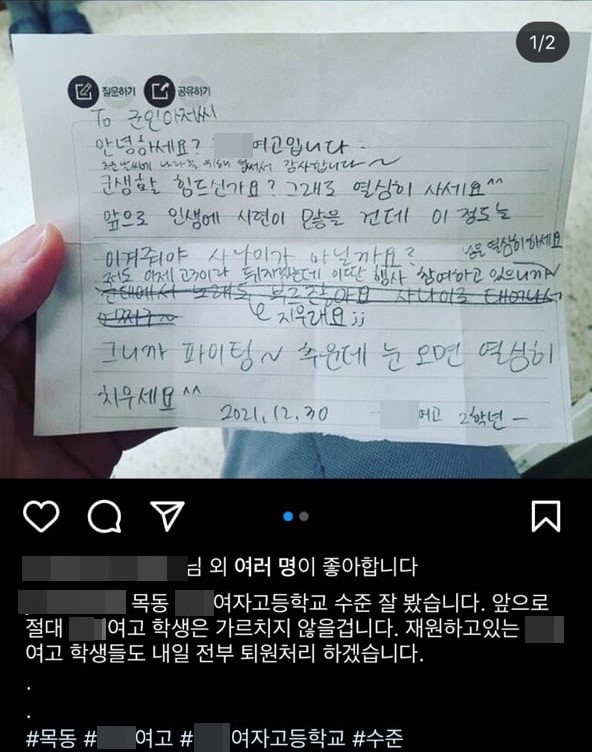 1/2
질문하기 공유하기
To 군인아저씨
안녕하세요? 여고입니다
추운날씨에 나라를 위해 힘써서 감사합니다~
군생활 힘드신가요? 그래도 열심히 사세요^^
앞으로 인생에 시련이 많을 건데 이 정도는
이겨줘야 사나이가 아닐까요?
저도 이제 고3이라 뒤지겠는데 이딴 행사 참여하고 있으니까
님은 열심히하세요
군대에서 노래도 부르잖아요 사나이로 태어나서
어쩌구~
지우래요;;
그니까 파이팅~ 추운데 눈 오면 열심히
치우세요^^
2021.12.30 여고 2학년-
님 외 여러 명이 좋아합니다
목동 여자고등학교 수준 잘 봤습니다. 앞으로
절대 여고 학생은 가르치지 않을겁니다. 재원하고있는
여고 학생들도 내일 전부 퇴원처리 하겠습니다.
.
.
#목동 # 여고 # 여자고등학교 #수준